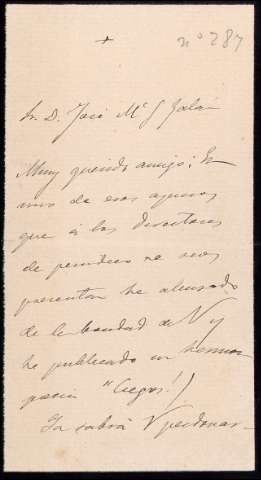 +
nº 287
Sr. D. José Mª G Galán
Muy querido amigo: En
uno de esos apuros
que á los directores
de periódicos se nos
presentan he abusado
de la bondad de V y
he publicado su hermosa
poesía "Ciegos!)
Ya sabrá V perdonar-